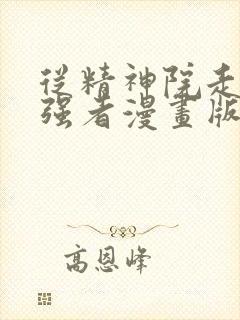 從精神院走
强者漫畫版
高恩峰